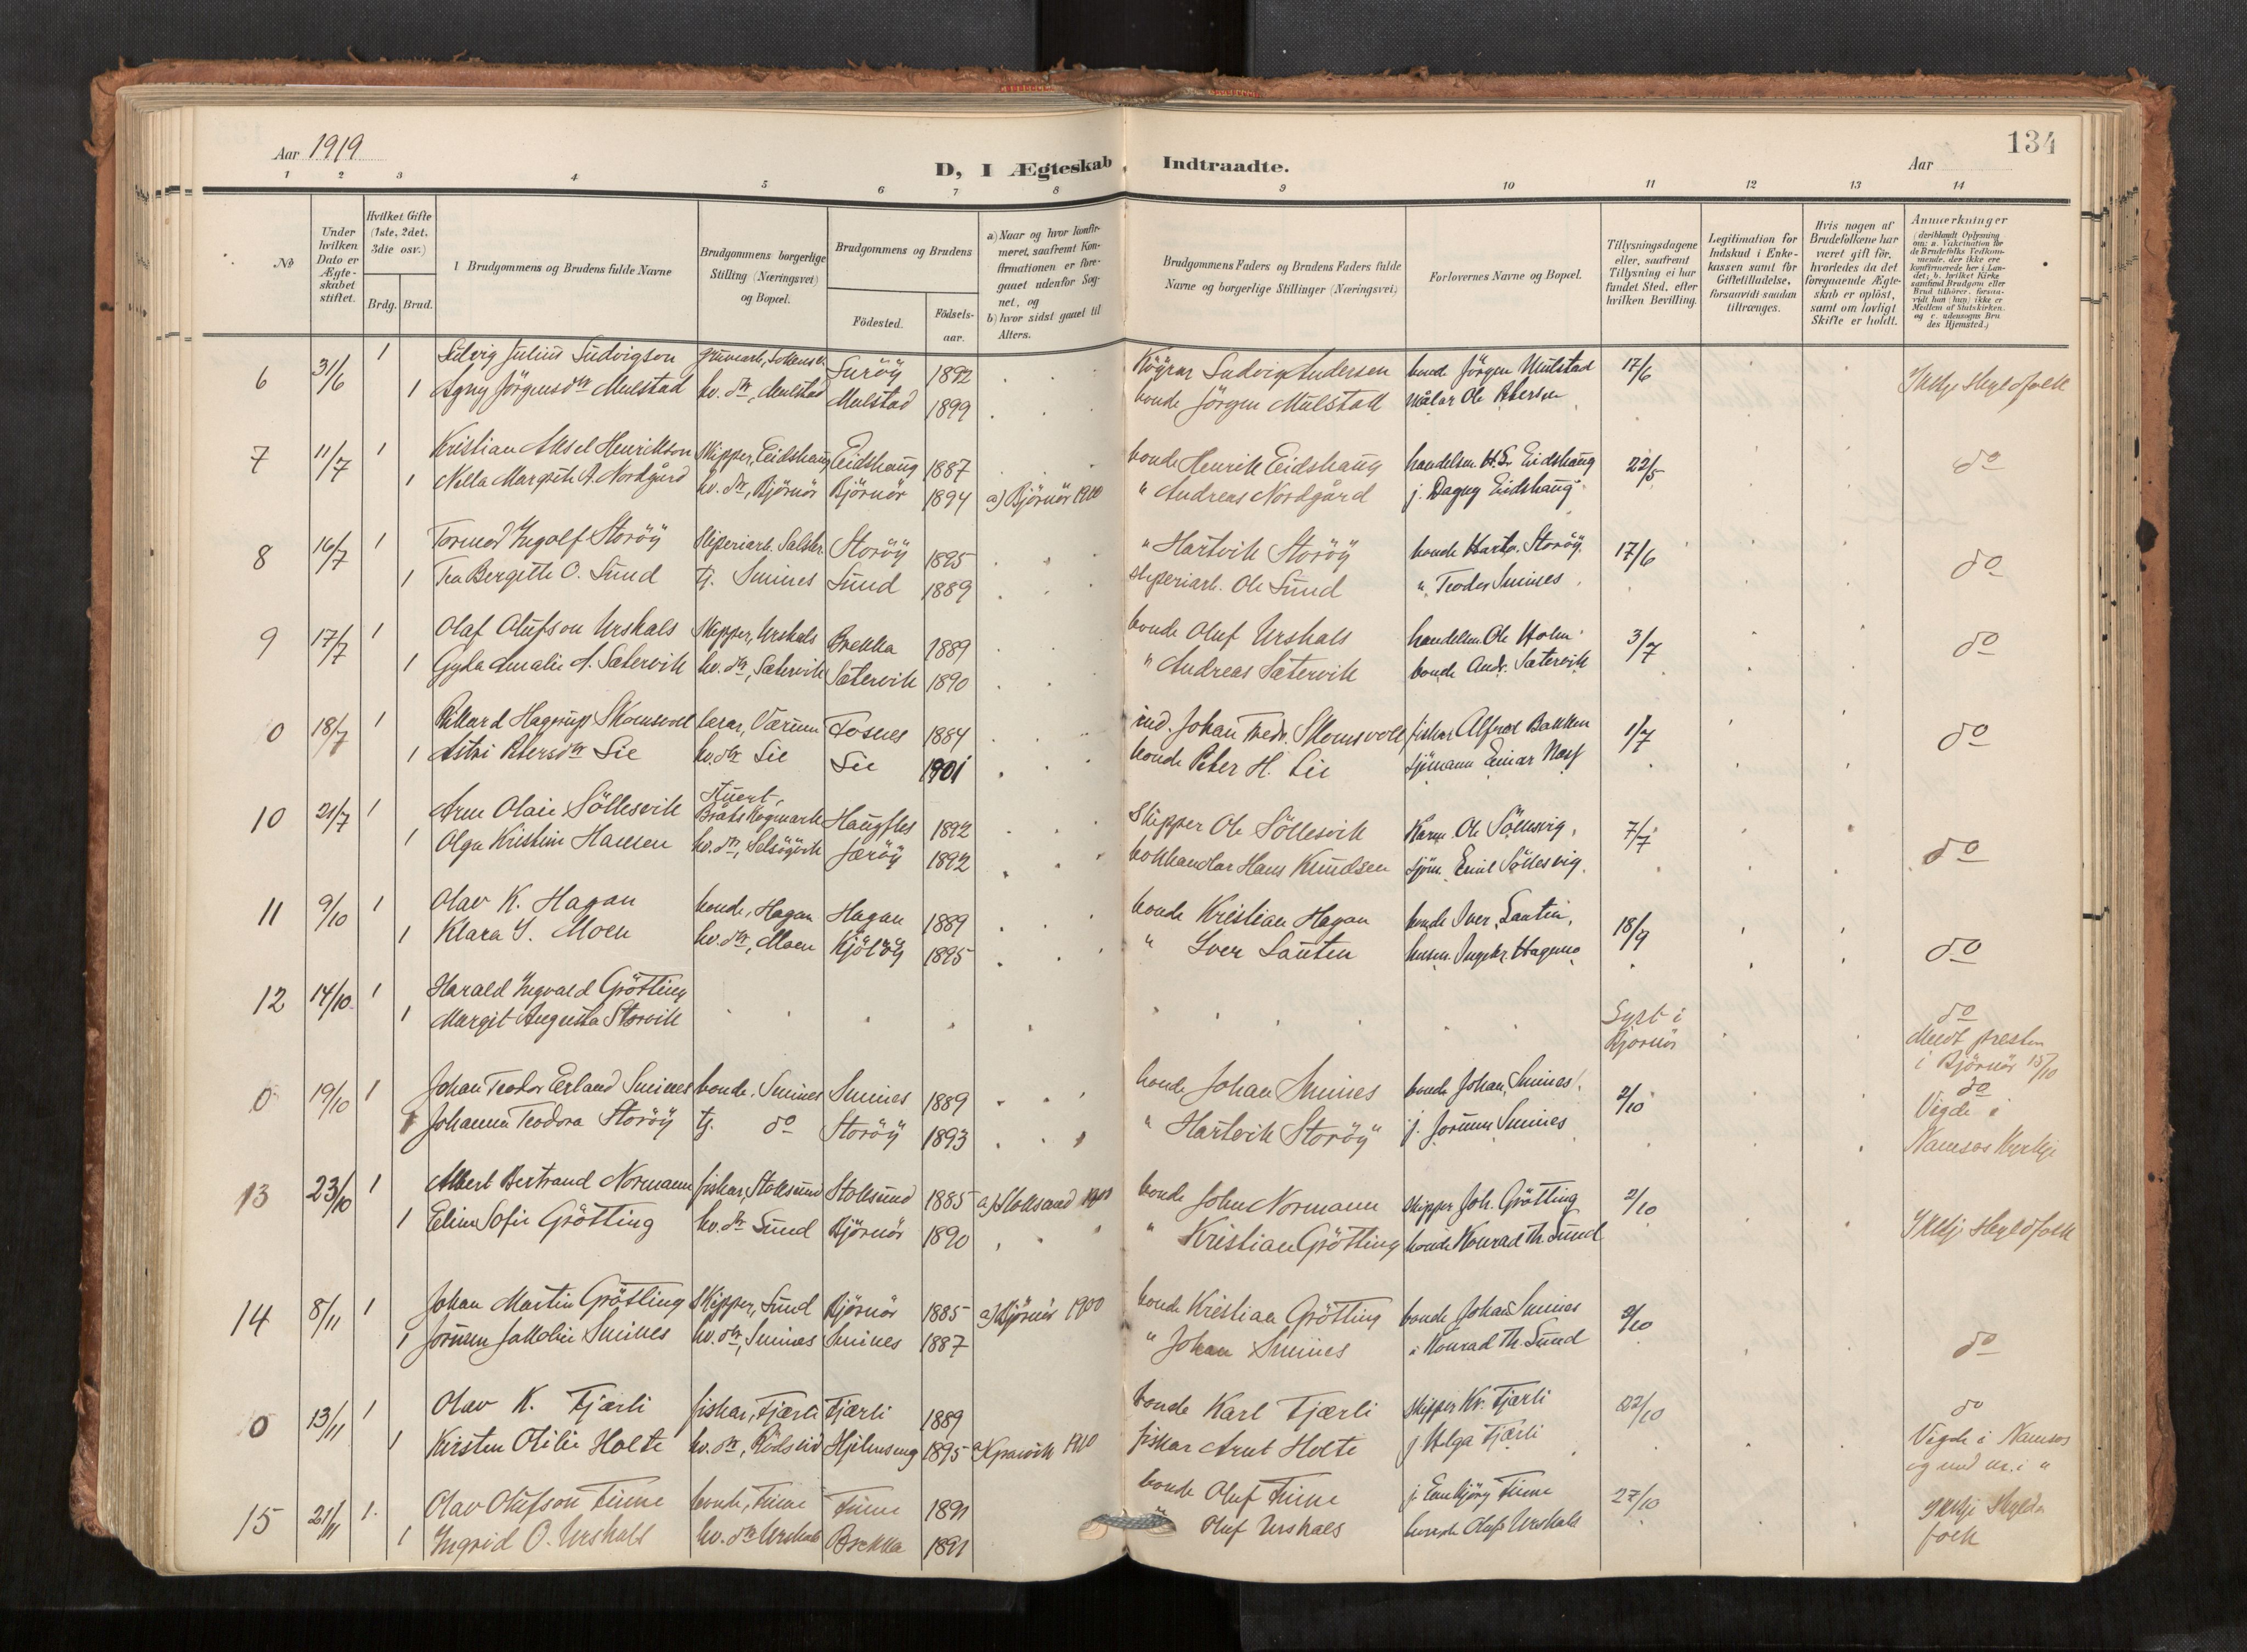 134
Aar 1919
D, I Ægteskab Indtraadte.
Aar
1 2 3 4 5 6 7 8 9 10 11 12 13 14
No
Under hvilken Dato er Ægteskabet stiftet.
Hvilket Gifte (1ste, 2det, 3die osv.)
Brdg. Brud.
Brudgommens og Brudens fulde Navne
Brudgommens borgerlige Stilling (Næringsvei) og Bopæl.
Brudgommens og Brudens
Födested.
Födsels-aar.
a) Naar og hvor konfirmeret, saafremt Konfirmationen er foregaaet udenfor Sognet, og
b) hvor sidst gaaet til Alters.
Brudgommens Faders og Brudens Faders fulde Navne og borgerlige Stillinger (Næringsvei)
Forlovernes Navne og Bopæl.
Tillysningsdagene eller, saafremt Tillysning ei har fundet Sted, efter hvilken Bevilling.
Legitimation for Indskud i Enkekassen samt for Giftetilladelse, forsaavidt saadan tiltrænges.
Hvis nogen af Brudefolkene har været gift för, hvorledes da det foregaaende Ægteskab er oplöst, samt om lovligt Skifte er holdt.
Anmærkninger (deriblandt Oplysning om: a. Vakcination for de Brudefolks Vedkommende, der ikke ere konfirmerede her i Landet; b. hvilket Kirkesamfund Brudgom eller Brud tilhörer, forsaavidt han (hun) ikke er Medlem af Statskirken, og c. udensogns Brudes Hjemsted.)
6 31/6 1 Julius Ludvigson 1892 Ludvig Andersen bonde Jörgen Mulstad 17/6 Ikkje skyldfolk
1 Agny Jörgensdtr Mulstad hv. dtr, Mulstad Mulstad 1899 bonde Jörgen Mulstad målar Ole Petersen
7 11/7 1 Kristian Aksel Henrikson Skipper, Eidshaug Eidshaug 1887 bonde Henrik Eidshaug handelsm. H.L. Eidshaug 22/5 do
1 Nella Margrete A. Nordgård hv. dtr, Bjørnør Bjørnør 1894 a) Bjørnør 1910 " Andreas Nordgård j. Dagny Eidshaug
8 16/7 1 Tormod Ingolf Storöy Sliperiarb. Salsbr. Storöy 1895 " Hartvik Storöy bonde Hartv. Storöy 17/6 do
1 Tea Bergitte O. Sund tj. Smines Sund 1889 sliperiarb. Ole Sund " Teodor Smines
9 17/7 1 Olaf Olufson Urskals Skipper, Urskals Brekka 1889 bonde Oluf Urskals handelsm. Ole Holm 3/7 do
1 Gyda Amalie A. Sætervik hv. dtr, Sætervik Sætervik 1890 " Andreas Sætervik bonde Andr. Sætervik
0 18/7 1 Rikard Hagerup Skomsvoll lærar, Værum Fosnes 1884 ind. Johan Fredr. Skomsvoll fiskar Alfred Bakken 1/7 do
1 Astri Petersdtr Lie hv. dtr Lie Lie 1901 bonde Peter H. Lie sjömann Einar
10 21/7 1 Arne Olaie Söllesvik Stuert, Haugfles 1892 Skipper Ole Söllesvik Ole Söllesvig 7/7 do
1 Olga Kristine Hansen hv. dtr, Jøröy 1892 bokhandlar Hans Knudsen sjöm. Emil Söllesvig.
11 9/10 1 Olav K. Hagan bonde, Hagan Hagan 1889 bonde Kristian Hagan bonde Iver Lauten, 18/9 do
1 Klara I. Moen hv. dtr, Moen Kjölöy 1895 " Iver Lauten husm. Ingebr. Hagemo
12 14/10 1 Harald Ingvald Grötting Lyst i Bjørnør do
1 Margit Augusta Storvik Meldt presten i Bjørnør 15/10
0 19/10 1 Johan Teodor Erland Smines bonde, Smines Smines 1889 bonde Johan Smines bonde Johan Smines 2/10 do Vigde i
1 Johanna Teodora Storöy tj. do Storöy 1893 " Hartvik Storöy j. Jorunn Smines Namsos kyrkje
13 23/10 1 Albert Bertrand Normann fiskar, Stoksund Stoksund 1885 a) Stoksund bonde John Normann skipper Joh. Grötting 2/10
1 Eline Sofie Grötting hv. dtr Sund Bjørnør 1890 " Kristian Grötting bonde Konrad Th. Sund Ikkje skyldfolk
14 8/11 1 Johan Martin Grötting Skipper, Sund Bjørnør 1885 a) Bjørnør 1900 bonde Kristian Grötting bonde Johan Smines 2/10
1 Jorunn Jakobine Smines hv. dtr, Smines Smines 1887 " Johan Smines " Konrad Th. Sund do
0 13/11 1 Olav K. Fjærli fiskar, Fjærli Fjærli 1889 bonde Karl Fjærli skipper Kr. Fjærli 22/10 do
1 Kirsten Otilie Holte hv. dtr, Rödseid Hjelmseng 1895 a) Gravvik 1910 fiskar Arnt Holte j. Helga Fjærli Vigde i Namsos
15 21/11 1. Olav Olufson Finne bonde, Finne Finne 1891 bonde Oluf Finne j. Finne 27/10 Ikkje skyld-
1 Ingrid O. Urskals hv. dtr Urskals Brekka 1891 " Oluf Urskals bonde Oluf Urskals folk